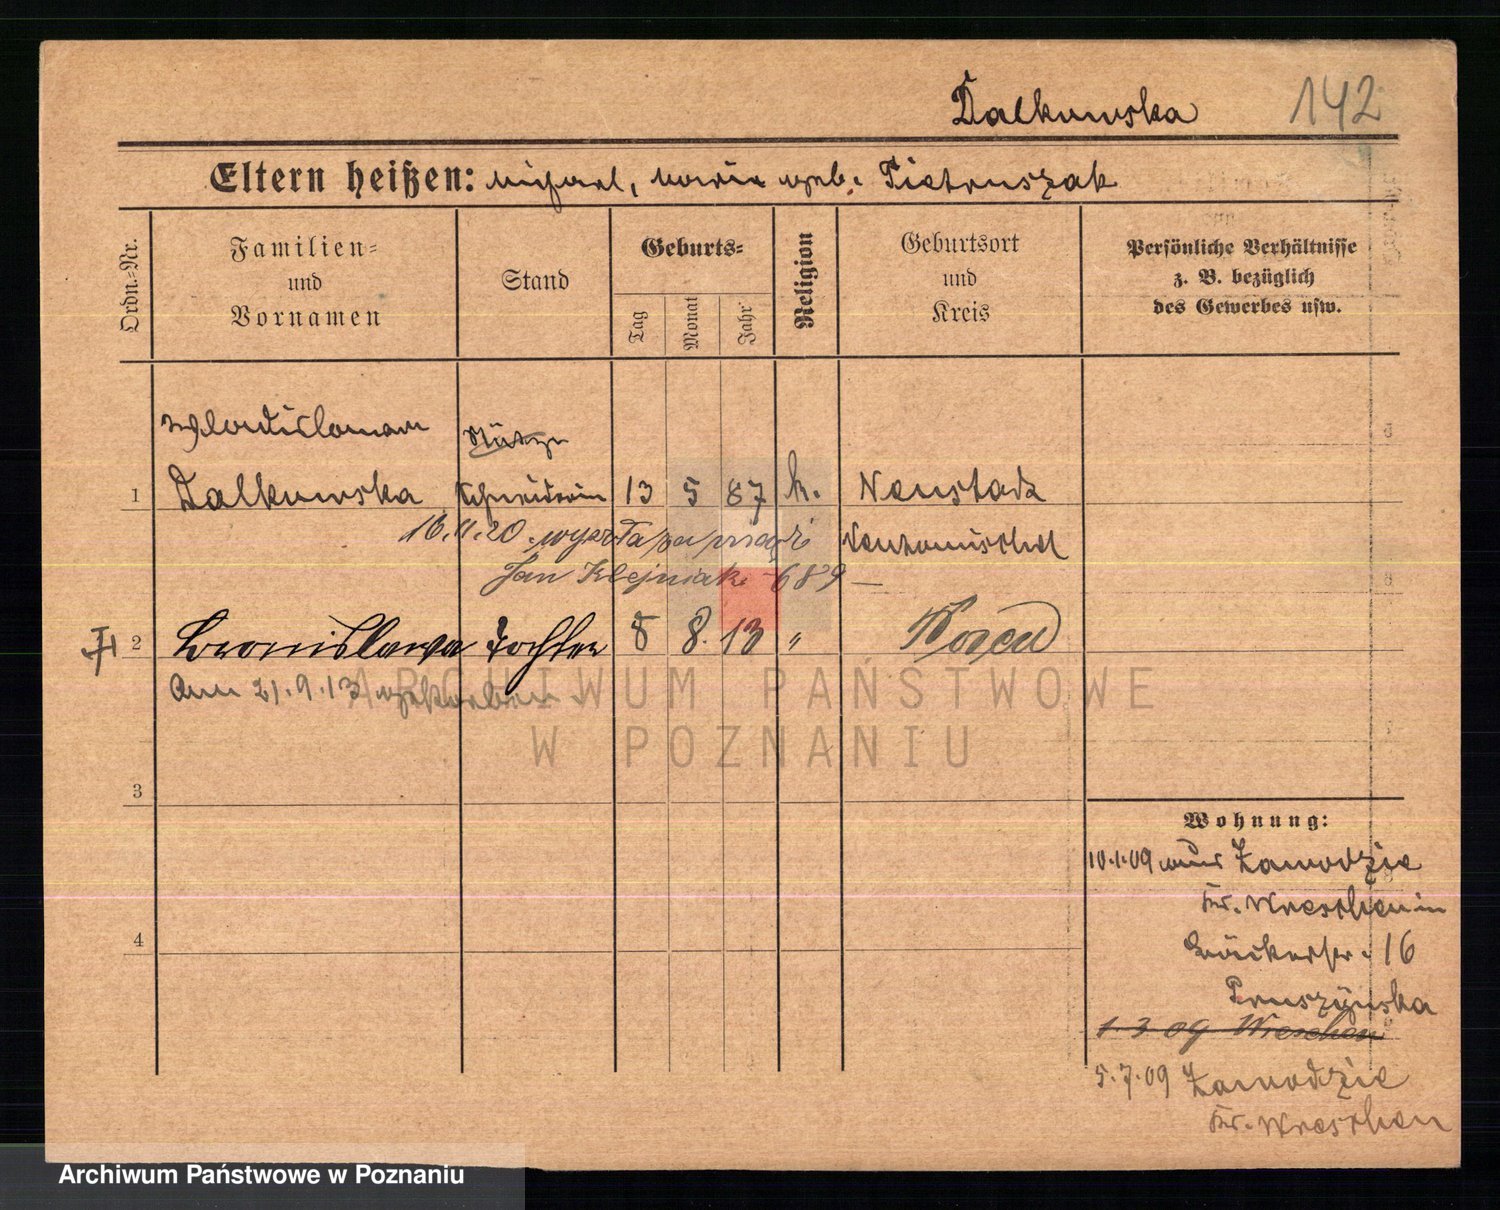 Dalkowska 142
Eltern heißen: Michael, Maria geb. Pietruszak
Ordn.=Nr.
Familien=
und
Vornamen
Stand
Geburts=
Tag
Monat
Jahr
Religion
Geburtsort
und
Kreis
Persönliche Verhältnisse
z. B. bezüglich
des Gewerbes usw.
Wladislawa Stütze
1 Dalkowska Schneiderin 13 5 87 k. Neustadt
16.11.20. wyszła za mąż
Jan Klejniak - 689 -
2 Bronislawa Tochter 8 8. 13 " Posen
Am 21.9.13 gestorben
ARCHIWUM PAŃSTWOWE
W POZNANIU
3
4
Wohnung:
10.1.09 aus Zawodzie
Kr. Wreschen in
Bäckerstr. 16
Pruszyńska
1.3 09 Wreschen
5.7.09 Zawodzie
Kr. Wreschen
Archiwum Państwowe w Poznaniu